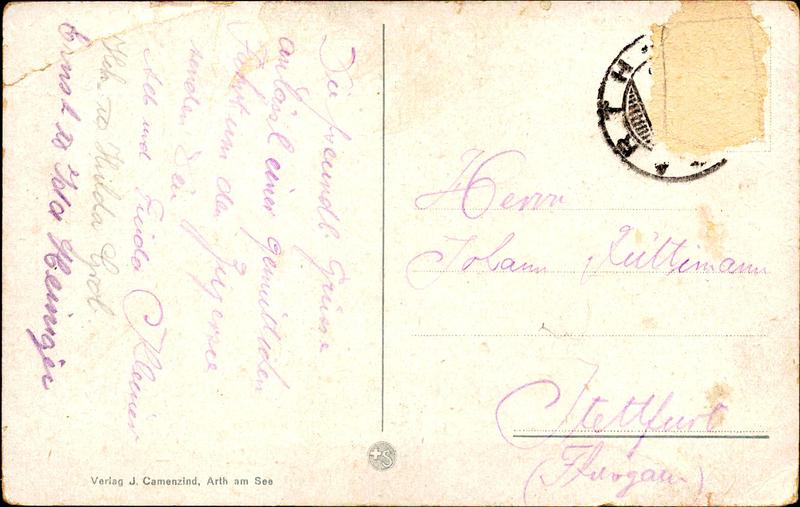 Die freundl. Grüsse
anlässl. einer gemütlichen
Fahrt um den Zugersee
senden Dir
Alb und Frida Kleiner
Hch. u Hilda
Ernst u Ida Heiniger
Verlag J. Camenzind, Arth am See
ARTH
Herrn
Johann Rüttimann
Stettfurt
(Thurgau)